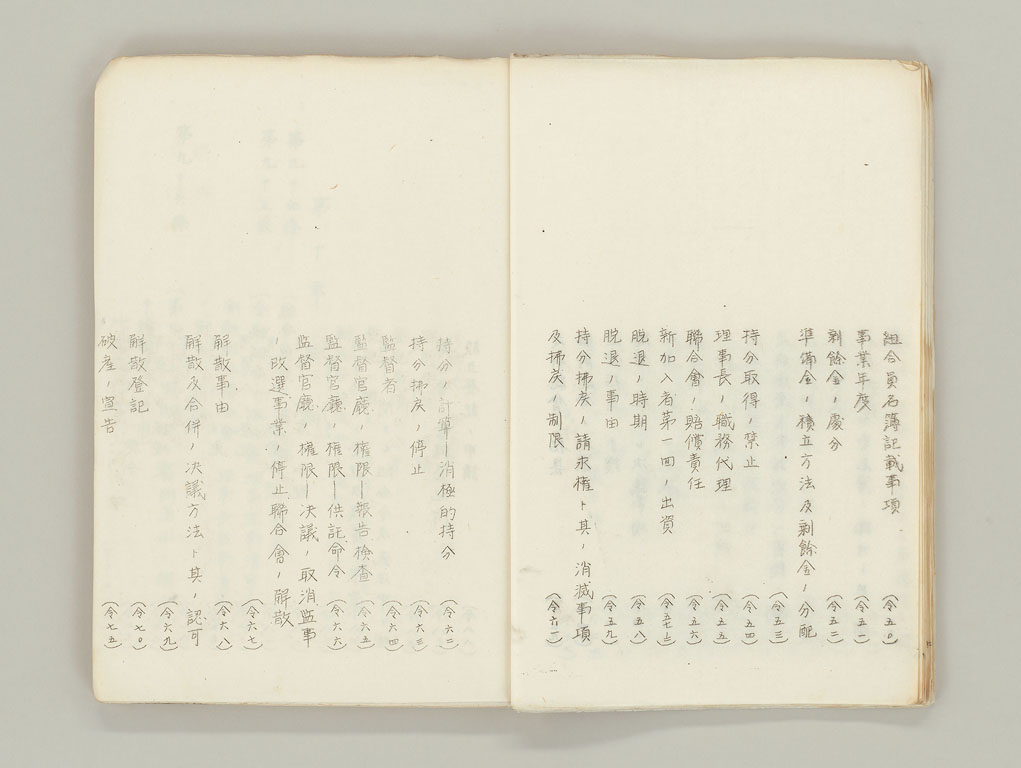 組合員名簿記載事項 (令五〇)
事業年度 (令五一)
剩餘金ノ處分 (令五二)
準備金ノ積立方法及剩餘金ノ分配
(令五三)
持分取得ノ禁止 (令五四)
理事長ノ職務代理 (令五五)
聯合會ノ賠償責任 (令五六)
新加入者第一回ノ出資 (令五七)
脫退ノ時期 (令五八)
脫退ノ事由 (令五九)
持分拂戾ノ請求權ト其ノ消滅事項
及拂戾ノ制限 (令六一)
持分ノ計算—消極的持分 (令六二)
持分拂戾ノ停止 (令六三)
監督者 (令六四)
監督官廳ノ權限—報告檢查 (令六五)
監督官廳ノ權限—供託命令 (令六六)
監督官廳ノ權限—决議ノ取消監事
ノ改選事業ノ停止聯合會ノ解散
(令六七)
解散事由 (令六八)
解散及合併ノ决議方法ト其ノ認可
(令六九)
解散登記 (令七〇)
破產ノ宣告 (令七五)